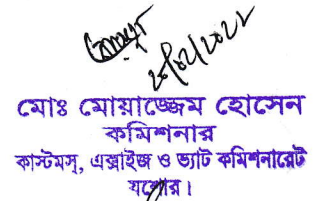 ২৮/০২/২০২২
মোঃ মোয়াজ্জেম হোসেন
কমিশনার
কাস্টমস্, এক্সাইজ ও ভ্যাট কমিশনারেট
যশোর।